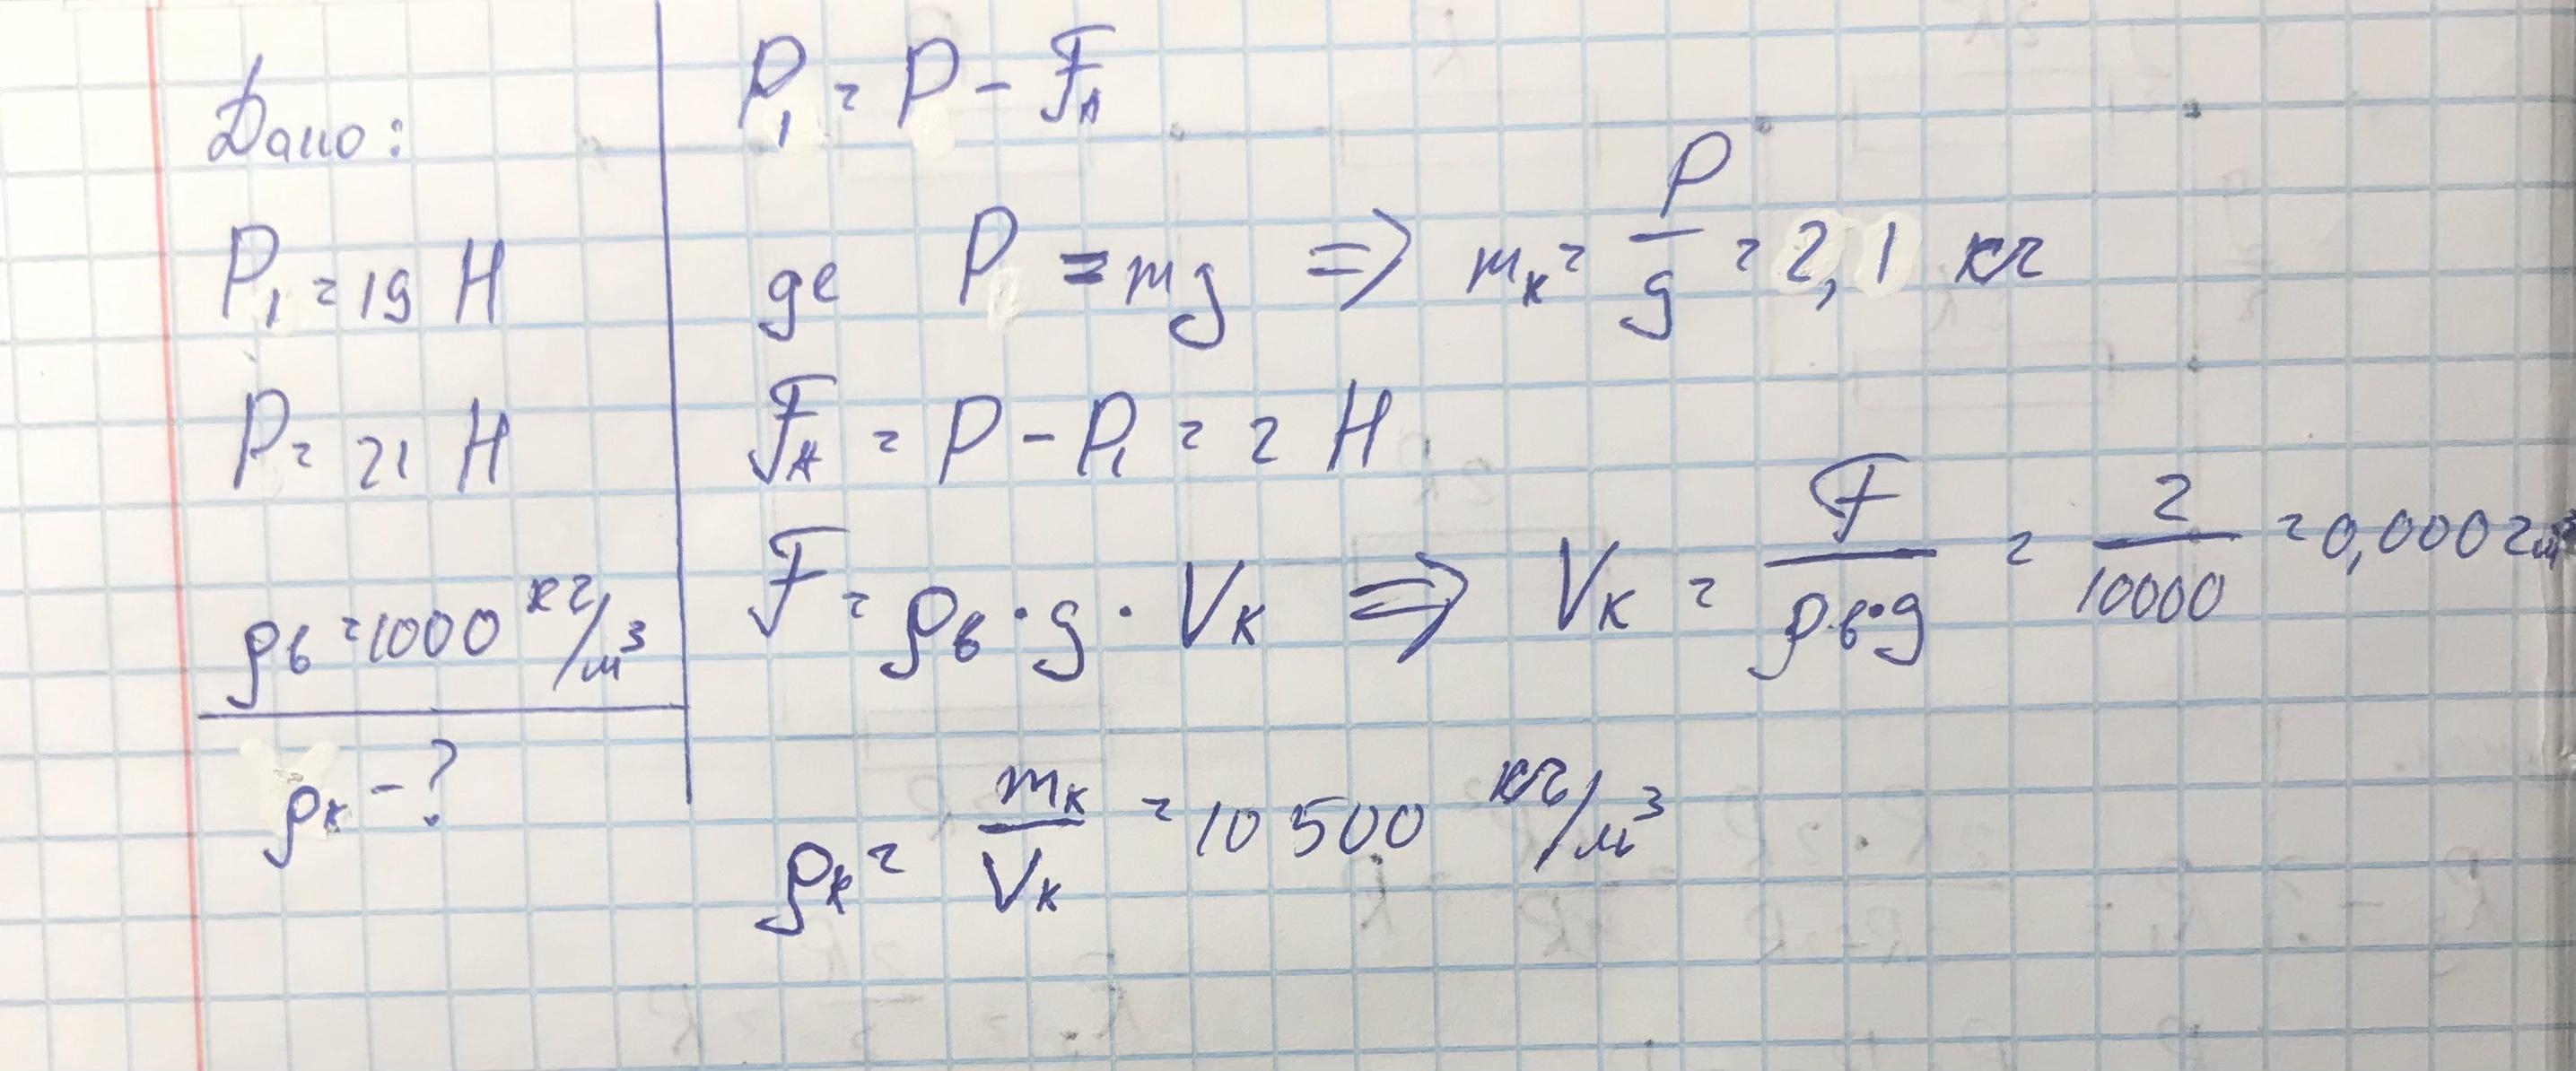 Дано:
P₁ = 19 Н
P = 21 Н
ρв = 1000 кг/м³
ρк - ?
P₁ = P - FA
де P = mg ⇒ mк = P/g = 2,1 кг
FA = P - P₁ = 2 Н
F = ρв · g · Vк ⇒ Vк = F/(ρв·g) = 2/10000 = 0,0002 м³
ρк = mк/Vк = 10 500 кг/м³